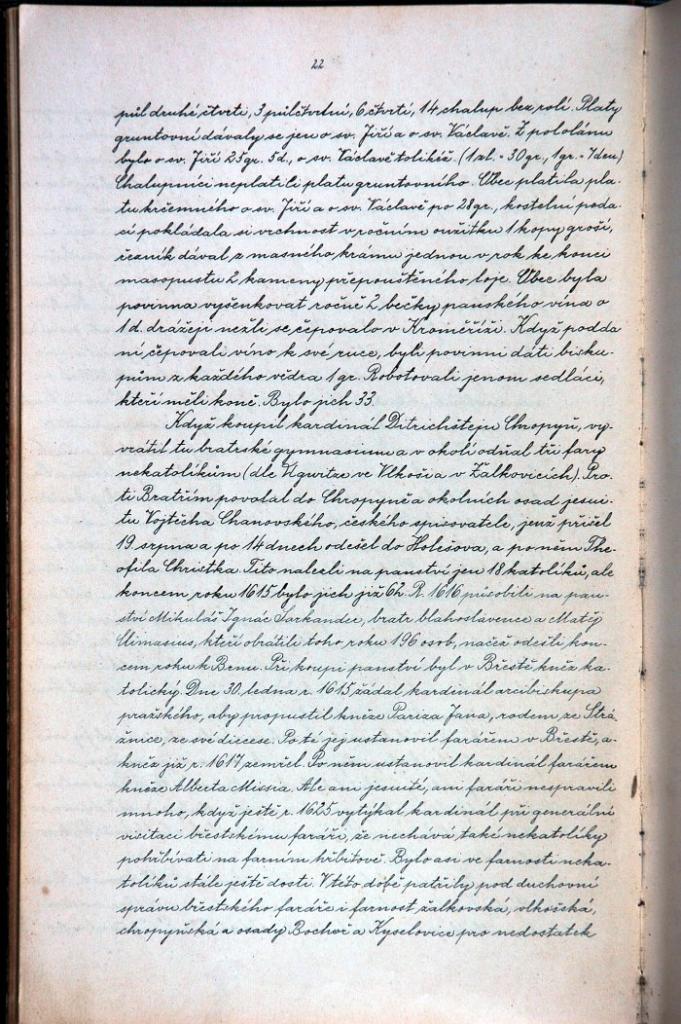 22
půl druhé čtvrti, 3 půlčtvrtní, 6 čtvrtí, 14 chalup bez rolí. Platy
gruntovní dávaly se jen o sv. Jiří a o sv. Václavě. Z pololánu
bylo o sv. Jiří 25 gr. 5 d., o sv. Václavě tolikéž. (1 zl. = 30 gr., 1 gr. = 7 den.)
Chalupníci neplatili platu gruntovního. Obec platila pla-
tu krčemného o sv. Jiří a o sv. Václavě po 28 gr., kostelní poda-
cí pokládala si vrchnost v ročním oužitku 1 kopy groší,
řezník dával z masného krámu jednou v rok ke konci
masopustu 2 kameny přepouštěného loje. Obec byla
povinna vyšenkovat ročně 2 bečky panského vína o
1 d. drážeji nežli se čepovalo v Kroměříži. Když podda
ní čepovali víno k své ruce, byli povinni dáti bisku-
pům z každého vědra 1 gr. Robotovali jenom sedláci,
kteří měli koně. Bylo jich 33.
Když koupil kardinál Ditrichštejn Chropyň, vy-
vrátil tu bratrské gymnasium a v okolí odňal tři fary
nekatolíkům (dle Ugwitze ve Vlkoši a v Žalkovicích). Pro-
ti Bratřím povolal do Chropyně a okolních osad jesui-
tu Vojtěcha Chanovského, českého spisovatele, jenž přišel
19. srpna a po 14 dnech odešel do Holešova, a po něm The-
ofila Christka. Tito nalezli na panství jen 18 katolíků, ale
koncem roku 1615 bylo jich již 62. R. 1616 působili na pan-
ství Mikuláš Ignác Sarkander, bratr blahoslavence a Matěj
Mimasius, kteří obrátili toho roku 196 osob, načež odešli kon-
cem roku k Brnu. Při koupi panství byl v Břestě kněz ka-
tolický. Dne 30. ledna r. 1615 žádal kardinál arcibiskupa
pražského, aby propustil kněze Pariza Jana, rodem ze Strá-
žnice, ze své diecese. Poté jej ustanovil farářem v Břestě, a-
kněz již r. 1617 zemřel. Po něm ustanovil kardinál farářem
kněze Alberta Missia. Ale ani jesuité, ani faráři nespravili
mnoho, když ještě r. 1625 vytýkal kardinál při generální
visitaci břestskému faráři, že nechává také nekatolíky
pohřbívati na farním hřbitově. Bylo asi ve farnosti neka-
tolíků stále ještě dosti. V této době patřily pod duchovní
správu břestského faráře i farnost žalkovská, vlkošská,
chropyňská a osady Bochoř a Kyselovice pro nedostatek